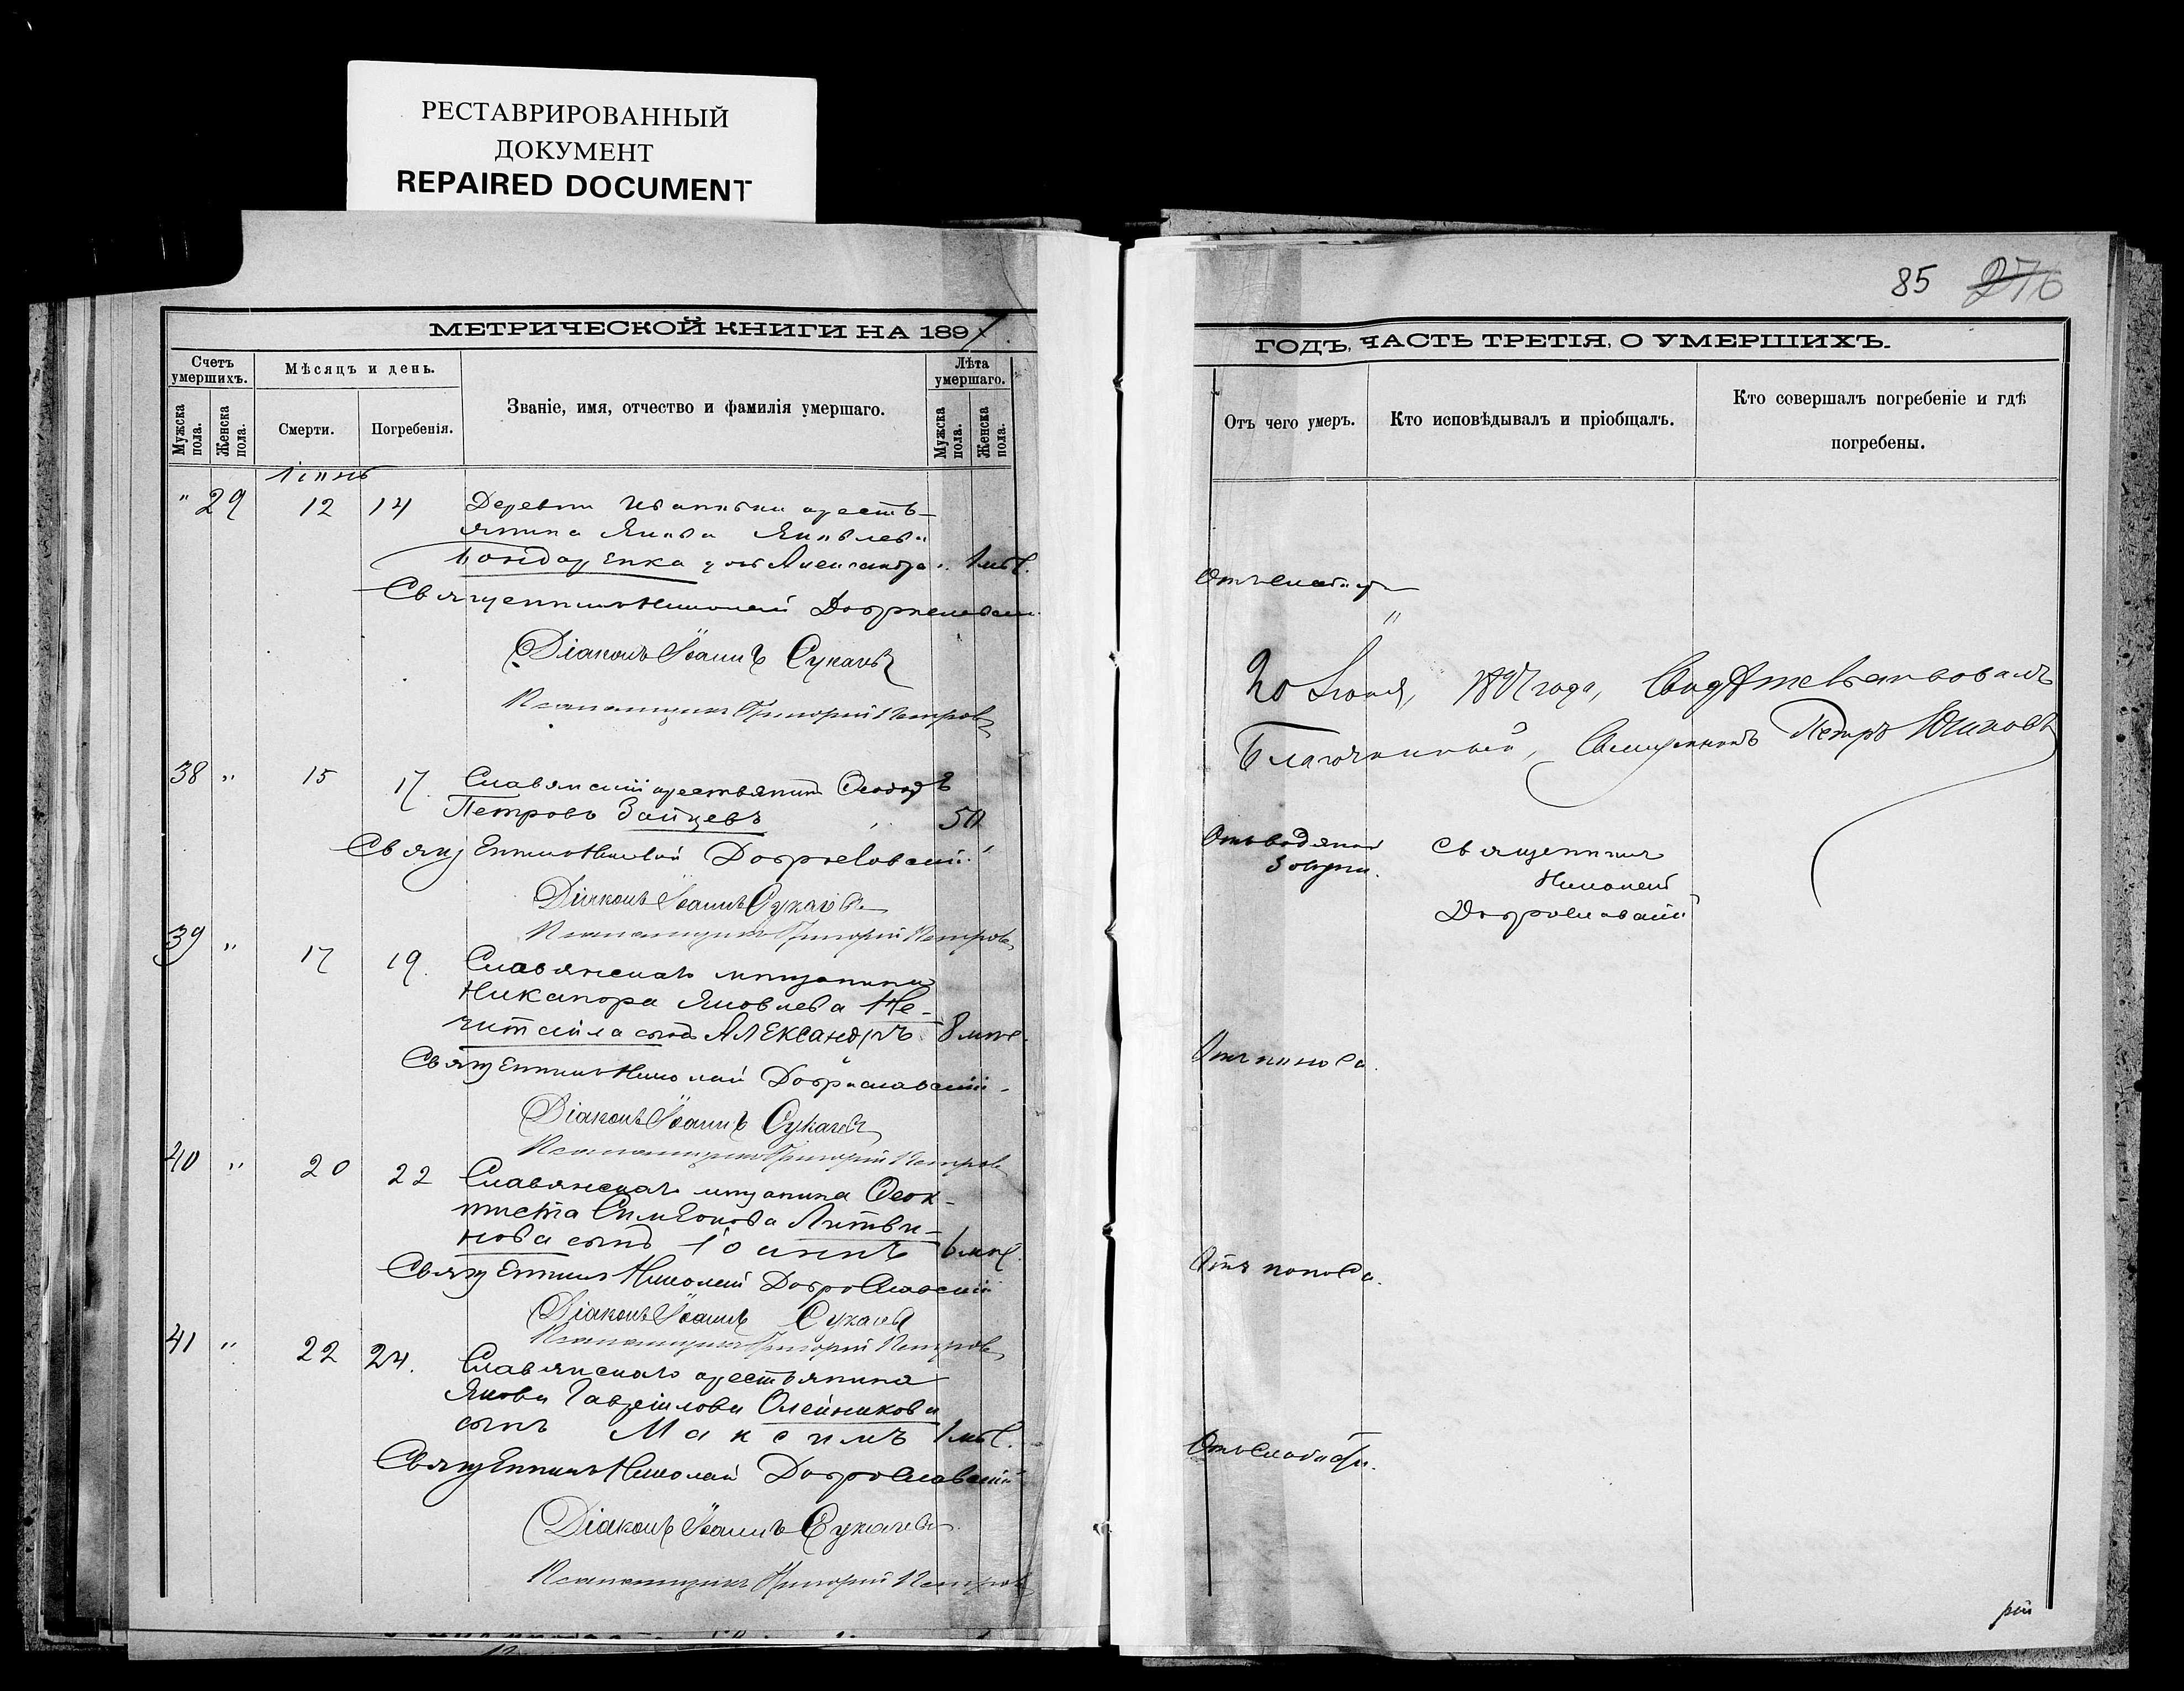 РЕСТАВРИРОВАННЫЙ
ДОКУМЕНТ
REPAIRED DOCUMENT
МЕТРИЧЕСКОЙ КНИГИ НА 1897
Счетъ умершихъ.
Мѣсяцъ и день.
Званіе, имя, отчество и фамилія умершаго.
Лѣта умершаго.
Мужска пола.
Женска пола.
Смерти.
Погребенія.
Мужска пола.
Женска пола.
Іюнь
" 29 12 14 Деревни Ивановки кресть-
янина Якова Яковлева
Бондаренка дочь Александра 1 мѣс.
Священникъ Николай Доброславскій
Діаконъ Іоаннъ Сукачевъ
Псаломщикъ Григорій Петровъ
38 " 15 17. Славянскій крестьянинъ Ѳеодоръ
Петровъ Зайцевъ 50
Священникъ Николай Доброславскій
Діаконъ Іоаннъ Сукачевъ
Псаломщикъ Григорій Петровъ
39 " 17 19. Славянскаго мѣщанина
Никанора Яковлева Не-
читайла сынъ Александръ 8 мѣс.
Священникъ Николай Доброславскій
Діаконъ Іоаннъ Сукачевъ
Псаломщикъ Григорій Петровъ
40 " 20 22 Славянскаго мѣщанина Ѳеок-
тиста Симеонова Литви-
нова сынъ Іоаннъ 6 мѣс.
Священникъ Николай Доброславскій
Діаконъ Іоаннъ Сукачевъ
Псаломщикъ Григорій Петровъ
41 " 22 24. Славянскаго крестьянина
Якова Гавріилова Олейникова
сынъ Максимъ 1 мѣс.
Священникъ Николай Доброславскій
Діаконъ Іоаннъ Сукачевъ
Псаломщикъ Григорій Петровъ
85 276
ГОДЪ, ЧАСТЬ ТРЕТІЯ, О УМЕРШИХЪ.
Отъ чего умеръ.
Кто исповѣдывалъ и пріобщалъ.
Кто совершалъ погребеніе и гдѣ
погребены.
Отъ слабости
"
20 1897 года, Свидѣтельствовалъ
Благочинный, Священникъ Петръ Юшковъ
Отъ водяной
Священникъ
Николай
Доброславскій
Отъ поноса.
Отъ поноса.
Отъ слабости.